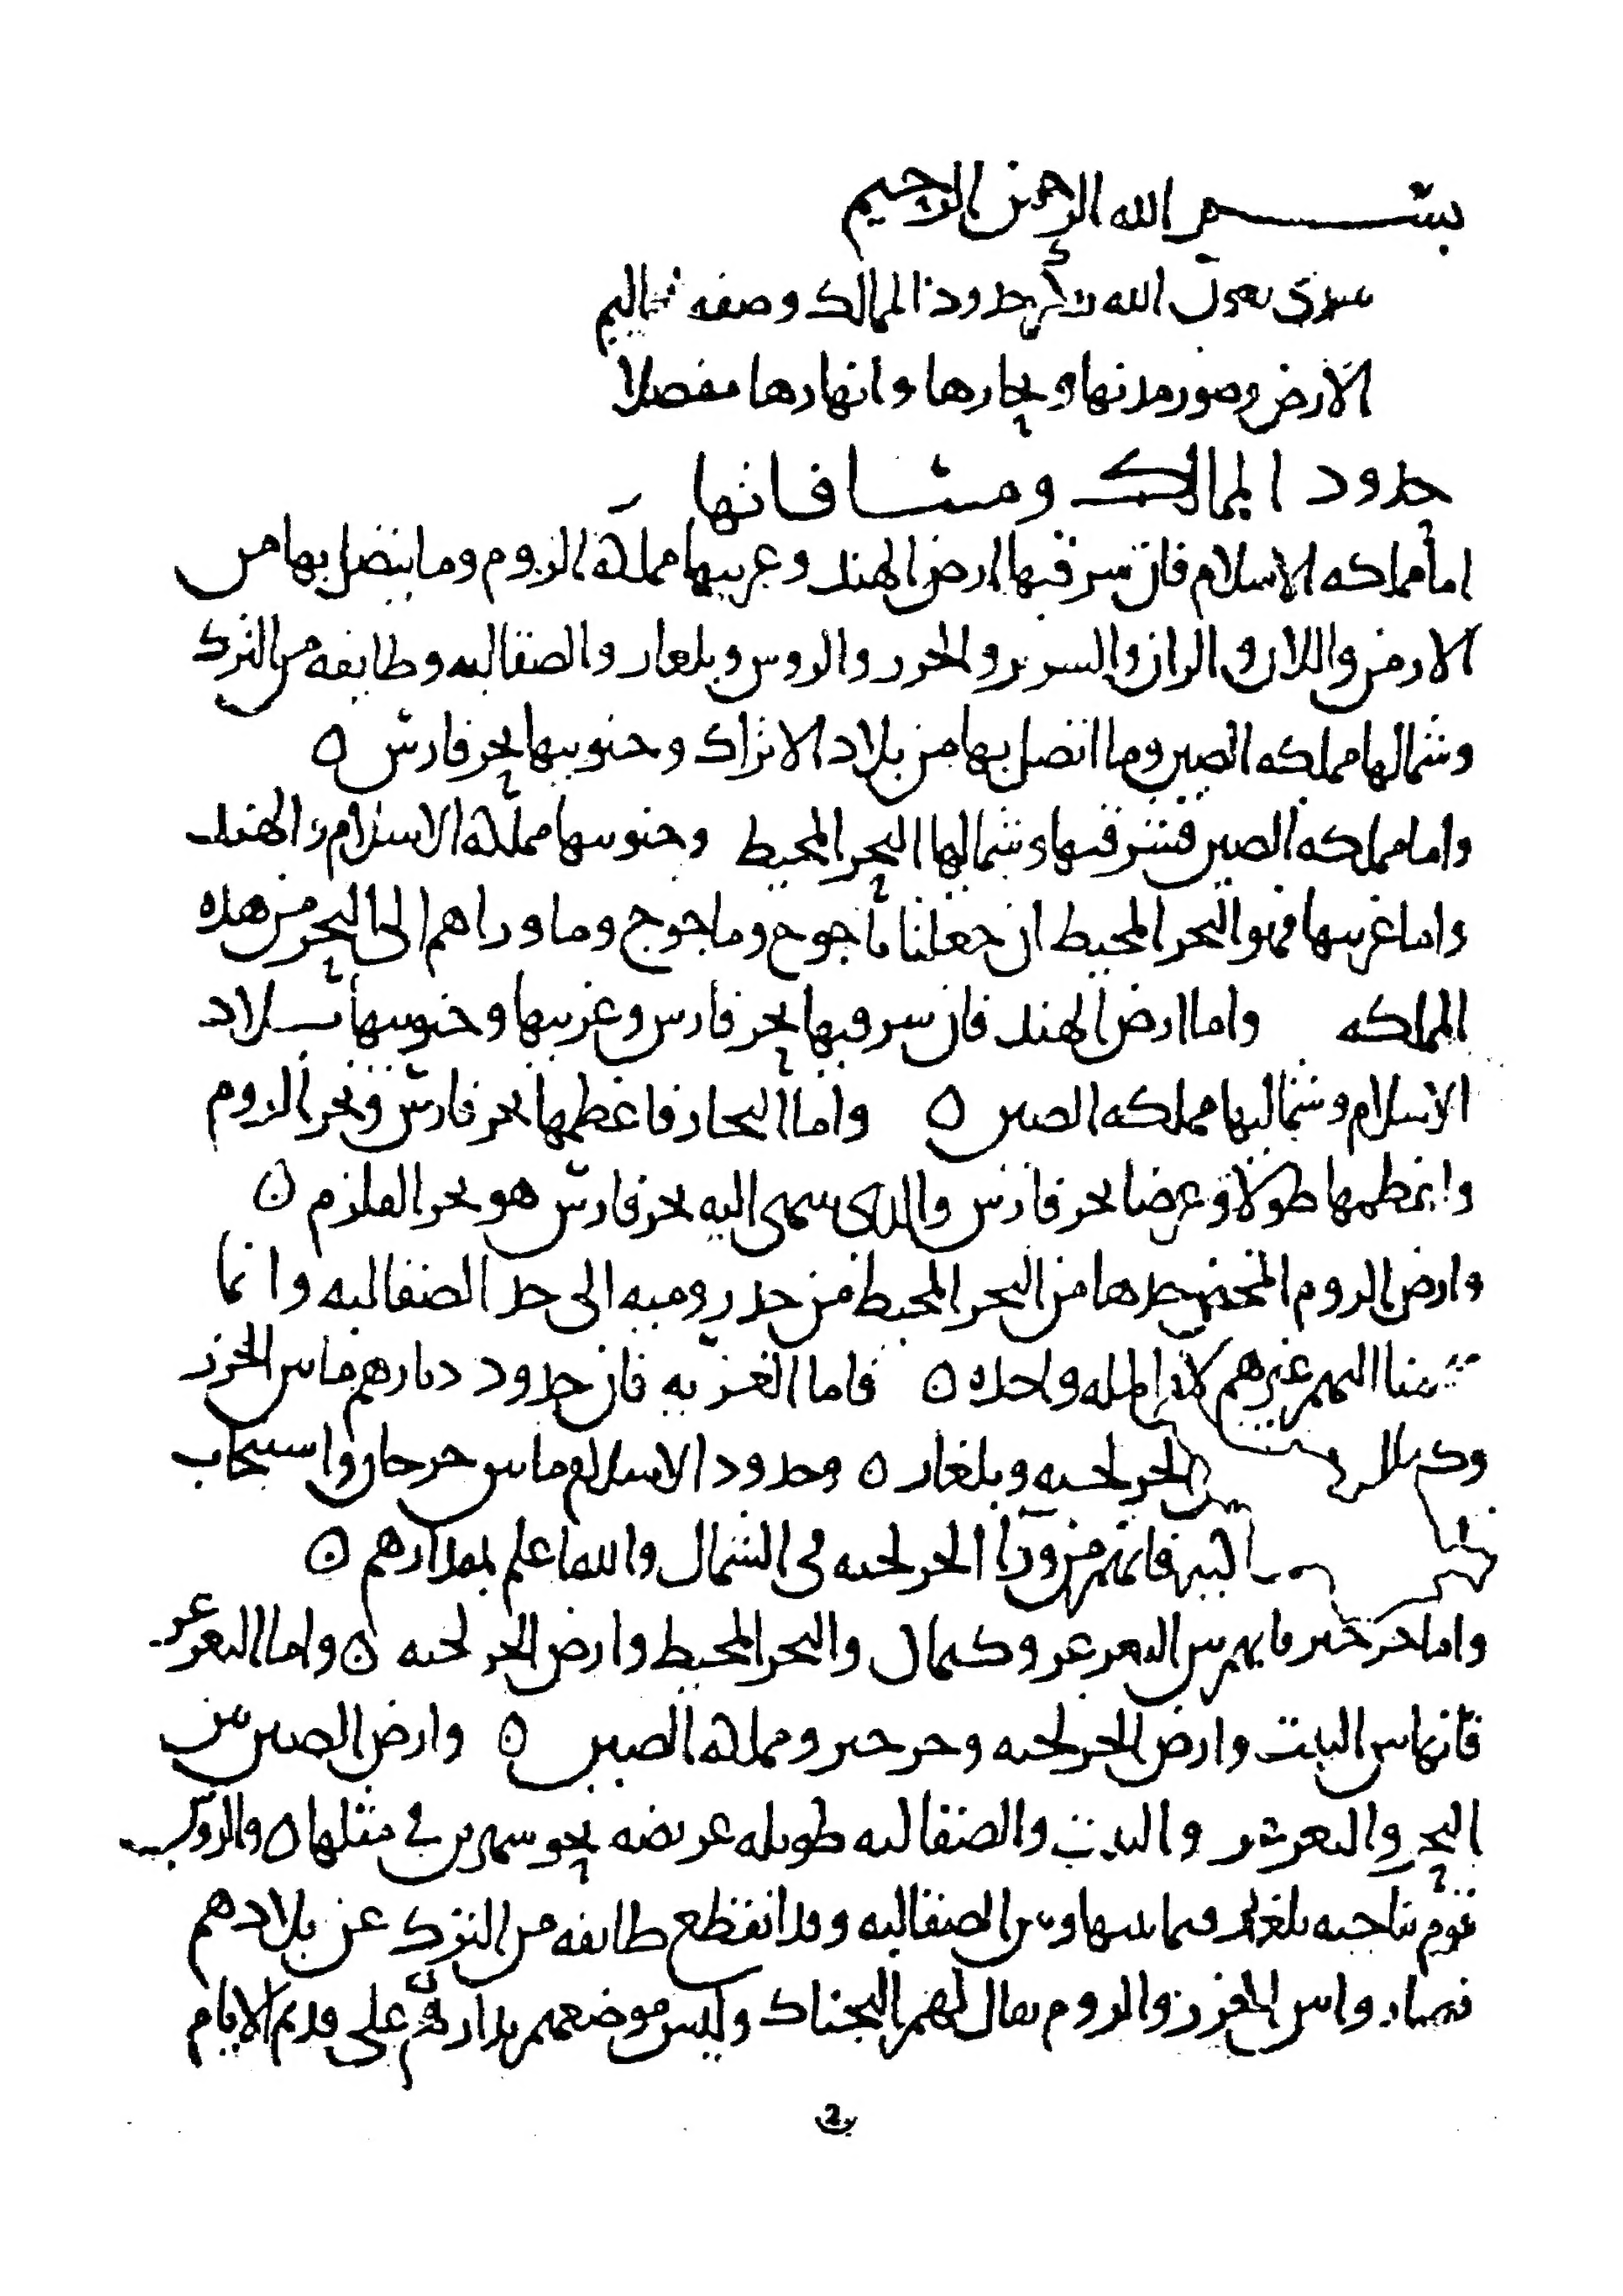 بسم الله الرحمن الرحيم
نبتدى بعون الله بذكر حدود الممالك وصفه اقاليم
الارض وصور مدنها وبحارها وانهارها مفصلا
حدود الممالك ومسافاتها
اما مملكه الاسلام فان شرقيها ارض الهند وغربيها مملكة الروم وما يتصل بها من
الارمن واللان والران والسرير والخزر والروس وبلغار والصقالبه وطايفه من الترك
وشمالها مملكه الصين وما اتصل بها من بلاد الاتراك وجنوبيها بحر فارس ه
واما مملكه الصين فشرقيها وشمالها البحر المحيط وجنوبيها مملكة الاسلام والهند
واما غربيها فهو البحر المحيط ان جعلنا ياجوج وماجوج وما وراهم الى البحر من هذه
المملكه واما ارض الهند فان شرقيها بحر فارس وغربيها وجنوبيها بلاد
الاسلام وشماليها مملكه الصين ه واما البحار فاعظمها بحر فارس وبحر الروم
واعظمها طولا وعرضا بحر فارس والذى ينتهى اليه بحر فارس هو بحر القلزم ه
وارض الروم حدها من البحر المحيط من حد روميه الى حد الصقالبه وانما
ضممنا اليهم غيرهم لان المله واحده ه فاما الغزيه فان حدود ديارهم ما بين الخزر
وكيماك الخرلخيه وبلغار ه وحدود الاسلام ما بين جرجان واسبيجاب
اليهم فانهم من ورا الخرلخيه فى الشمال والله اعلم بمقدارهم ه
واما خرخيز فانهم بين التغزغز وكيماك والبحر المحيط وارض الخرلخيه ه واما التغزغز
فانها بين التبت وارض الخرلخيه وخرخيز ومملكة الصين ه وارض الصين بين
البحر والتغزغز والتبت والصقالبه طويله عريضه نحو شهرين فى مثلها ه والروس
قوم بناحيه بلغار فيما بينها وبين الصقالبه وقد انقطع طايفه من الترك عن بلادهم
فصاروا بين الخزر والروم يقال لهم البجناك وليس موضعهم بدار لهم على قديم الايام
2